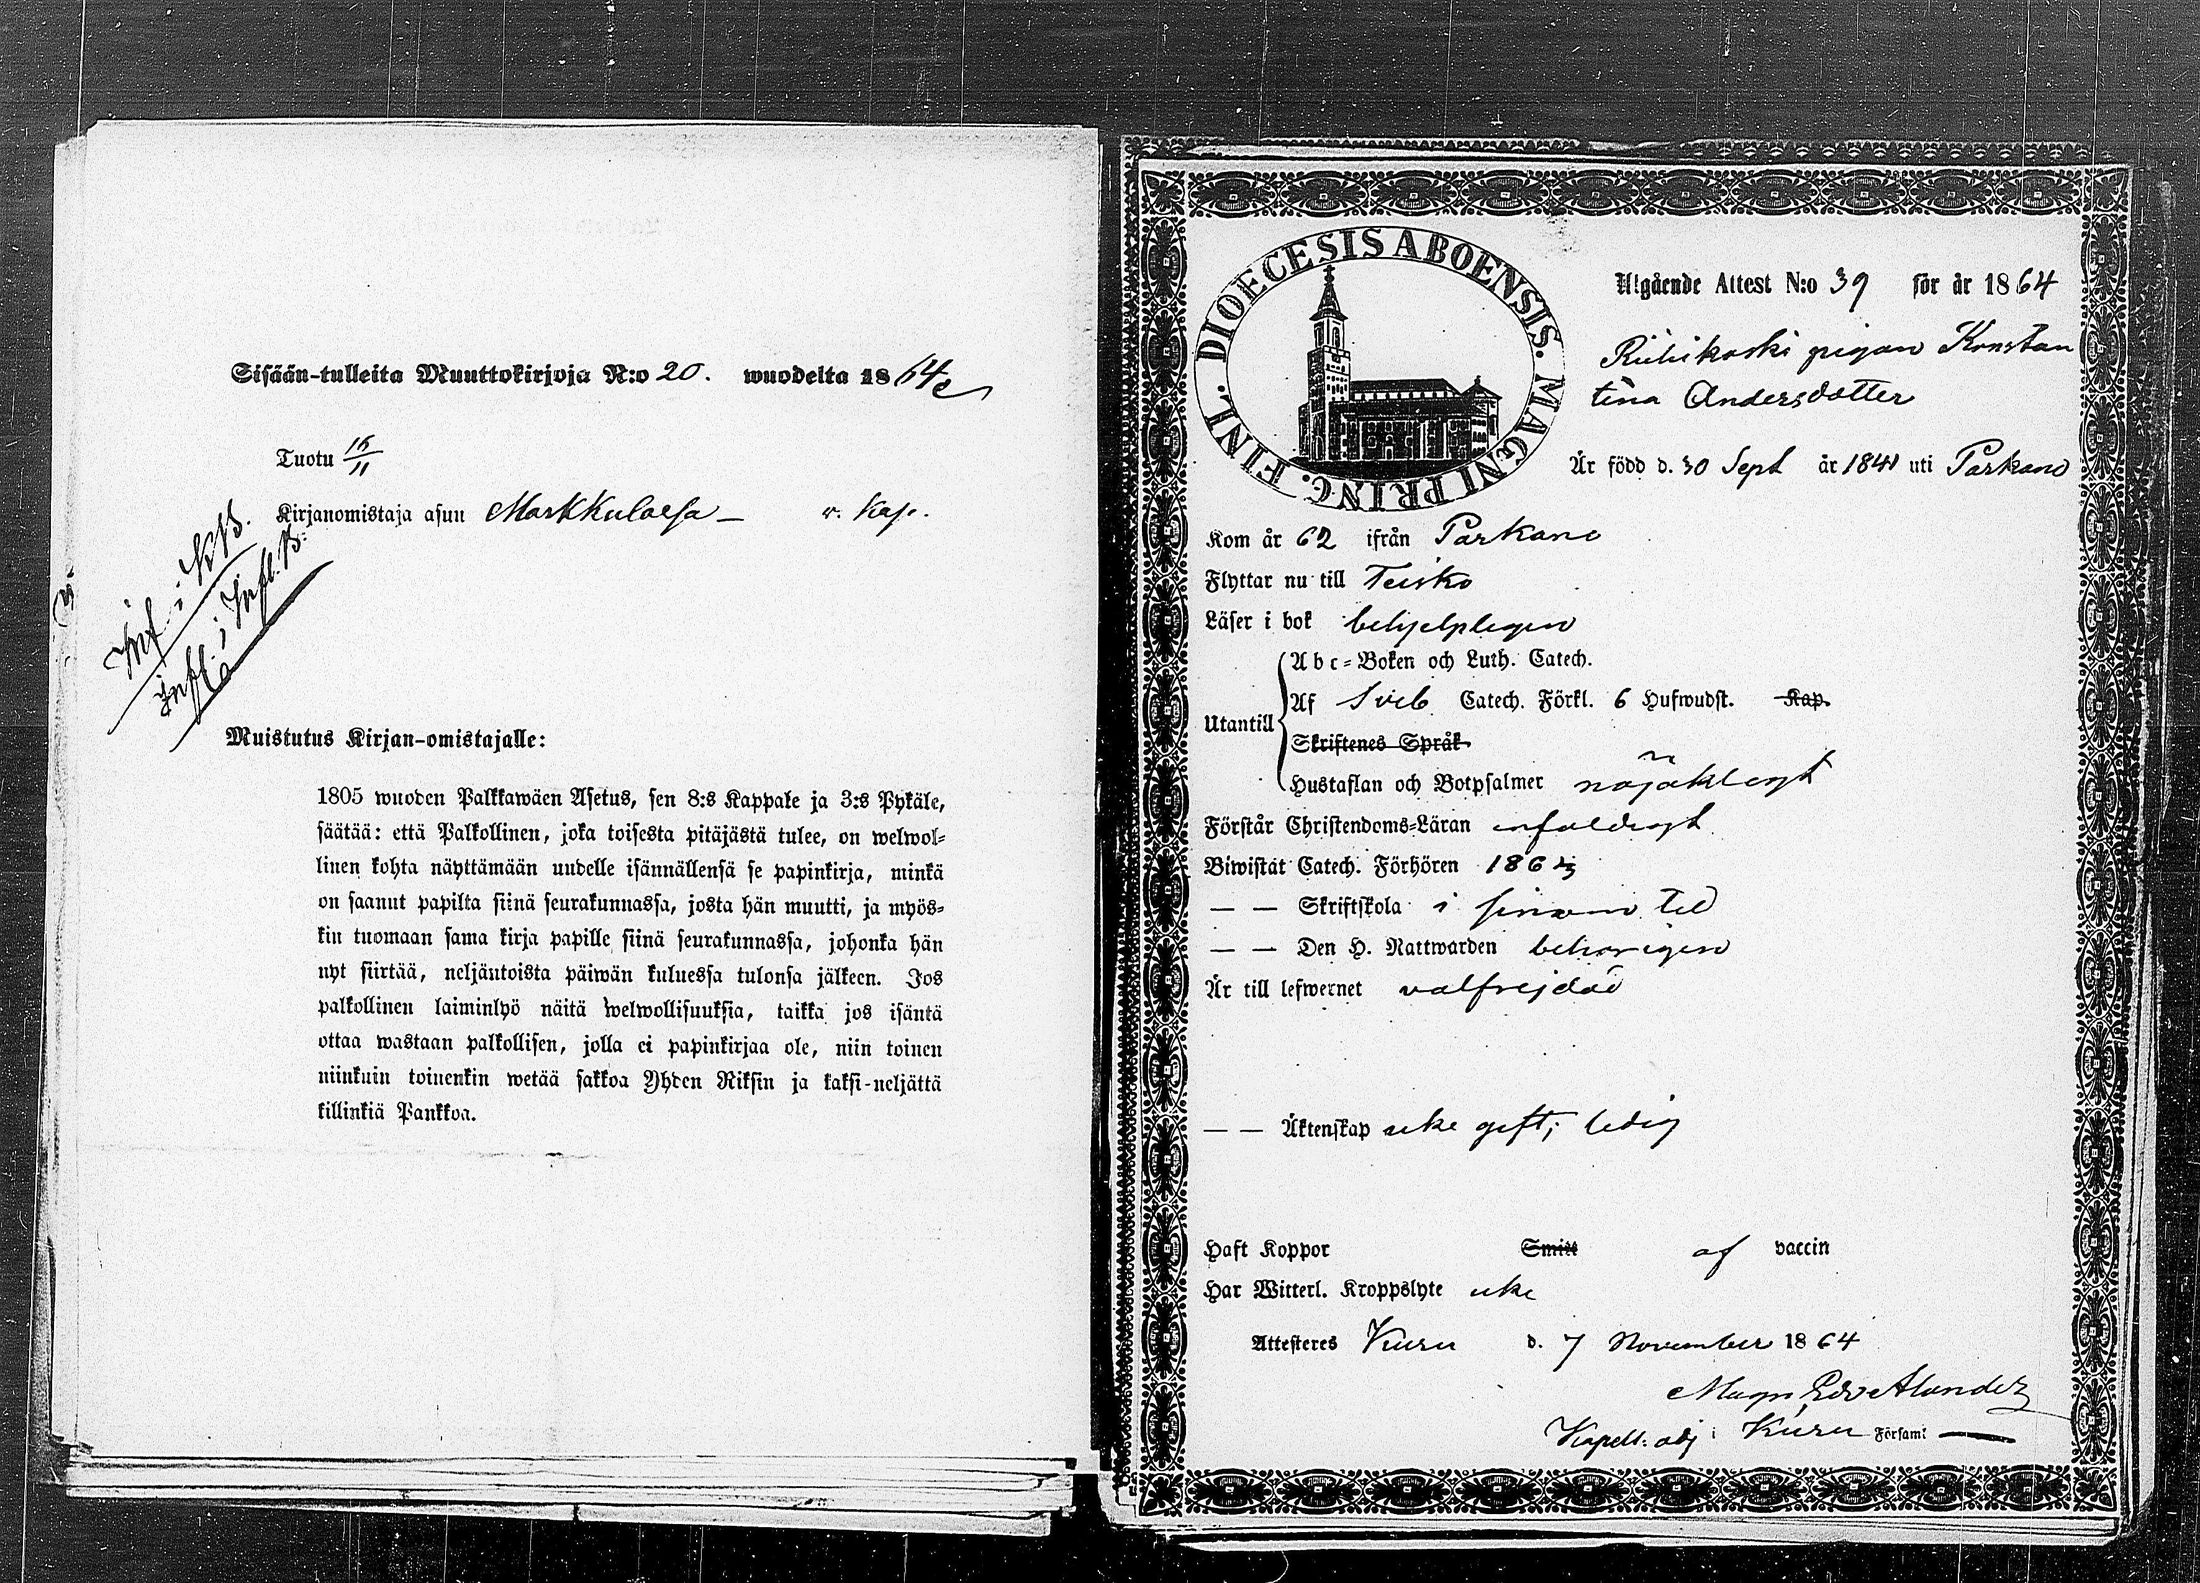 Sisään-tulleita Muuttokirjoja N:o 20. wuodelta 1864
Tuotu 16/11
Kirjanomistaja asuu Markkulassa — v. Kap.
Inf. i KB.
Infl. i Infl. B:
Muistutus Kirjan-omistajalle:
1805 wuoden Palkkawäen Asetus, sen 8:s Kappale ja 3:s Pykäle,
säätää: että Palkollinen, joka toisesta pitäjästä tulee, on welwol-
linen kohta näyttämään uudelle isännällensä se papinkirja, minkä
on saanut papilta siinä seurakunnassa, josta hän muutti, ja myös-
kin tuomaan sama kirja papille siinä seurakunnassa, johonka hän
nyt siirtää, neljäntoista päiwän kuluessa tulonsa jälkeen. Jos
palkollinen laiminlyö näitä welwollisuuksia, taikka jos isäntä
ottaa wastaan palkollisen, jolla ei papinkirjaa ole, niin toinen
niinkuin toinenkin wetää sakkoa Yhden Riksin ja kaksi-neljättä
killinkiä Pankkoa.
DIOECESIS ABOENSIS. MAGNI PRINC. FINL.
Utgående Attest N:o 39 för år 1864
Riuhikoski pigan Konstan
tina Andersdotter
Är född d. 30 Sept år 1841 uti Parkano
Kom år 62 ifrån Parkano
Flyttar nu till Teisko
Läser i bok behjelpligen
Utantill
Abc-Boken och Luth. Catech.
Af Sveb Catech. Förkl. 6 Hufwudst. Kap.
Skriftenes Språk
Hustaflan och Botpsalmer nöjaktligt
Förstår Christendoms-Läran enfaldigt
Biwistat Catech. Förhören 1864
— — Skriftskola i sinom tid
— — Den H. Nattwarden behörigen
Är till lefwernet välfrejdad
— — Äktenskap icke gift; ledig
Haft Koppor Smitt af vaccin
Har Witterl. Kroppslyte icke
Attesteres Kuru d. 7 November 1864
Magn Edv Alander
Kapell: adj i Kuru Församl —